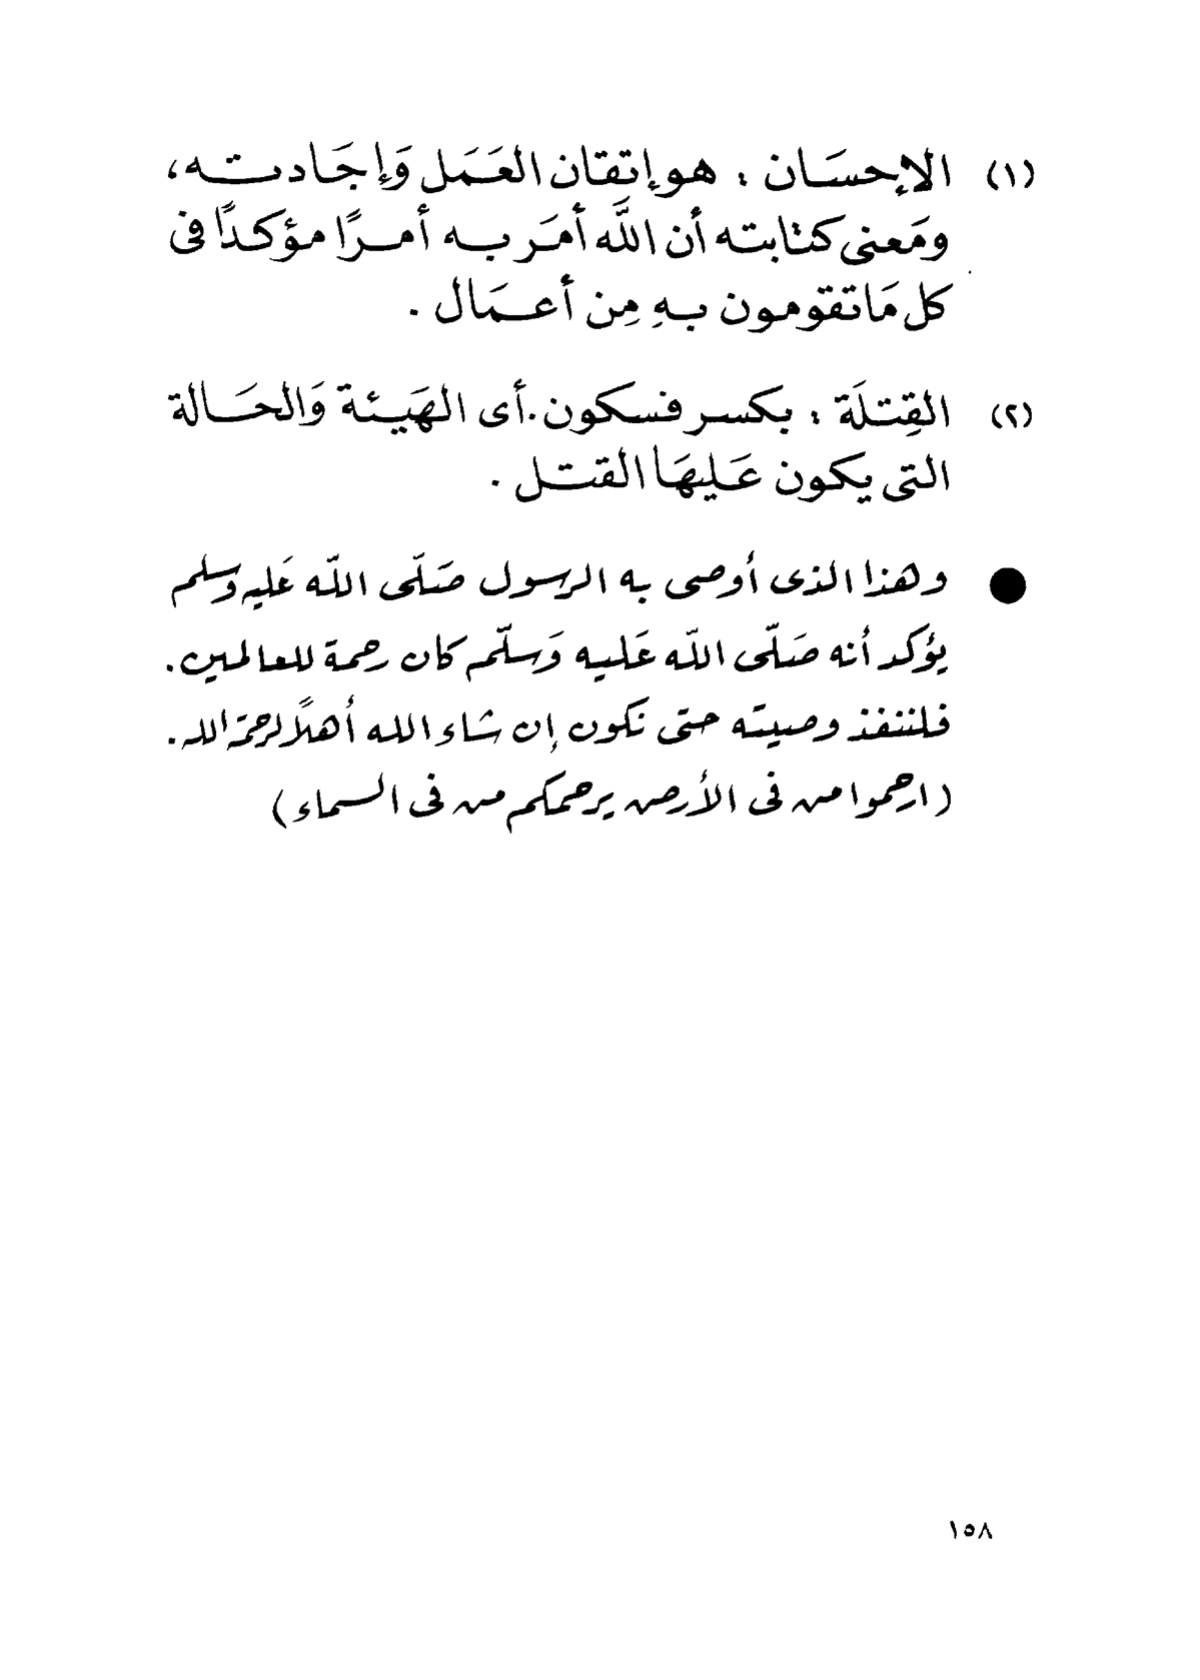 (١) الإحسَان : هو إتقان العَمَل وَإجَادته،
ومَعنى كتابته أن اللَّه أمَر به أمرًا مؤكدًا فى
كل مَا تقومون بهِ مِن أعمَال .
(٢) القِتلَة : بكسر فسكون . أى الهَيئة وَالحَالة
التى يكون عَليهَا القتل .
● وهذا الذى أوصى به الرسول صَلّى اللّه عَليه وَسلم
يؤكد أنه صَلّى اللّه عَليه وَسلّم كان رحمة للعالمين .
فلننفذ وصيته حتى نكون إن شاء الله أهلًا لرحمة الله .
(ارحموا من فى الأرض يرحمكم من فى السماء)
١٥٨